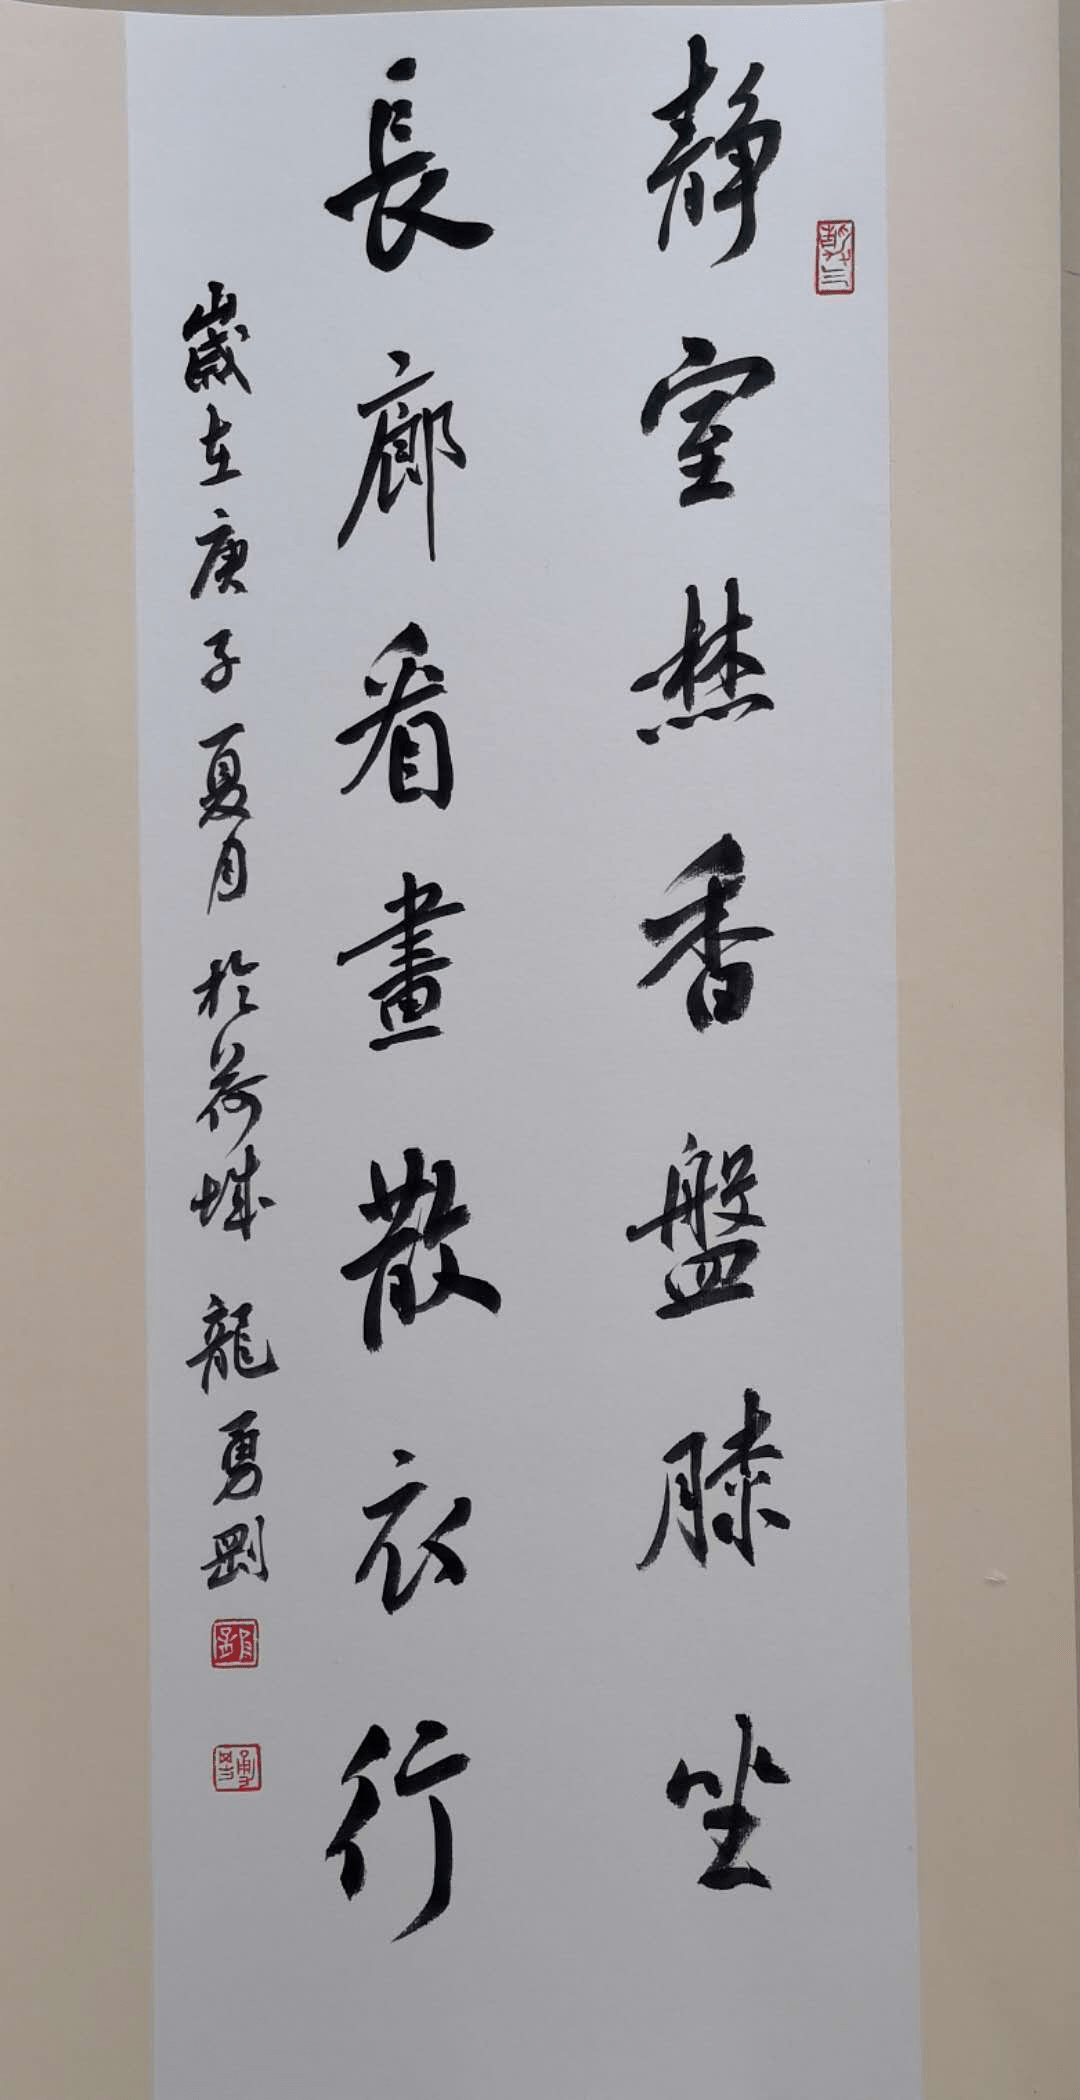 静室焚香盤膝坐
長廊看畫散衣行
歲在庚子夏月於荷城 龍勇剛